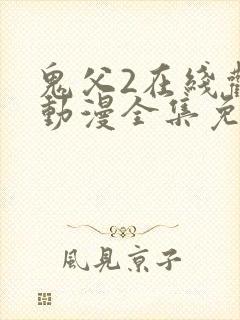 鬼父2在綫
動漫全集免
風見京子